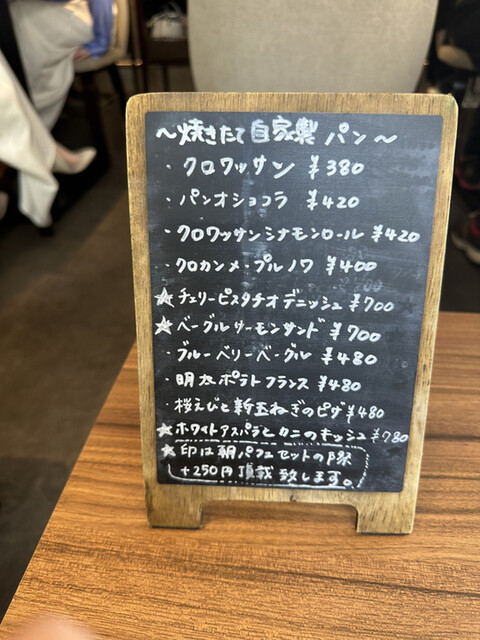 ～焼きたて自家製パン～
・クロワッサン ¥380
・パンオショコラ ¥420
・クロワッサンシナモンロール ¥420
・クロカンメープルノワ ¥400
☆チェリーピスタチオデニッシュ ¥700
☆ベーグルサーモンサンド ¥700
・ブルーベリーベーグル ¥480
・明太ポテトフランス ¥480
・桜えびと新玉ねぎのピザ ¥480
☆ホワイトアスパラとカニのキッシュ ¥780
☆印は朝パフェセットの際
+250円頂戴致します。